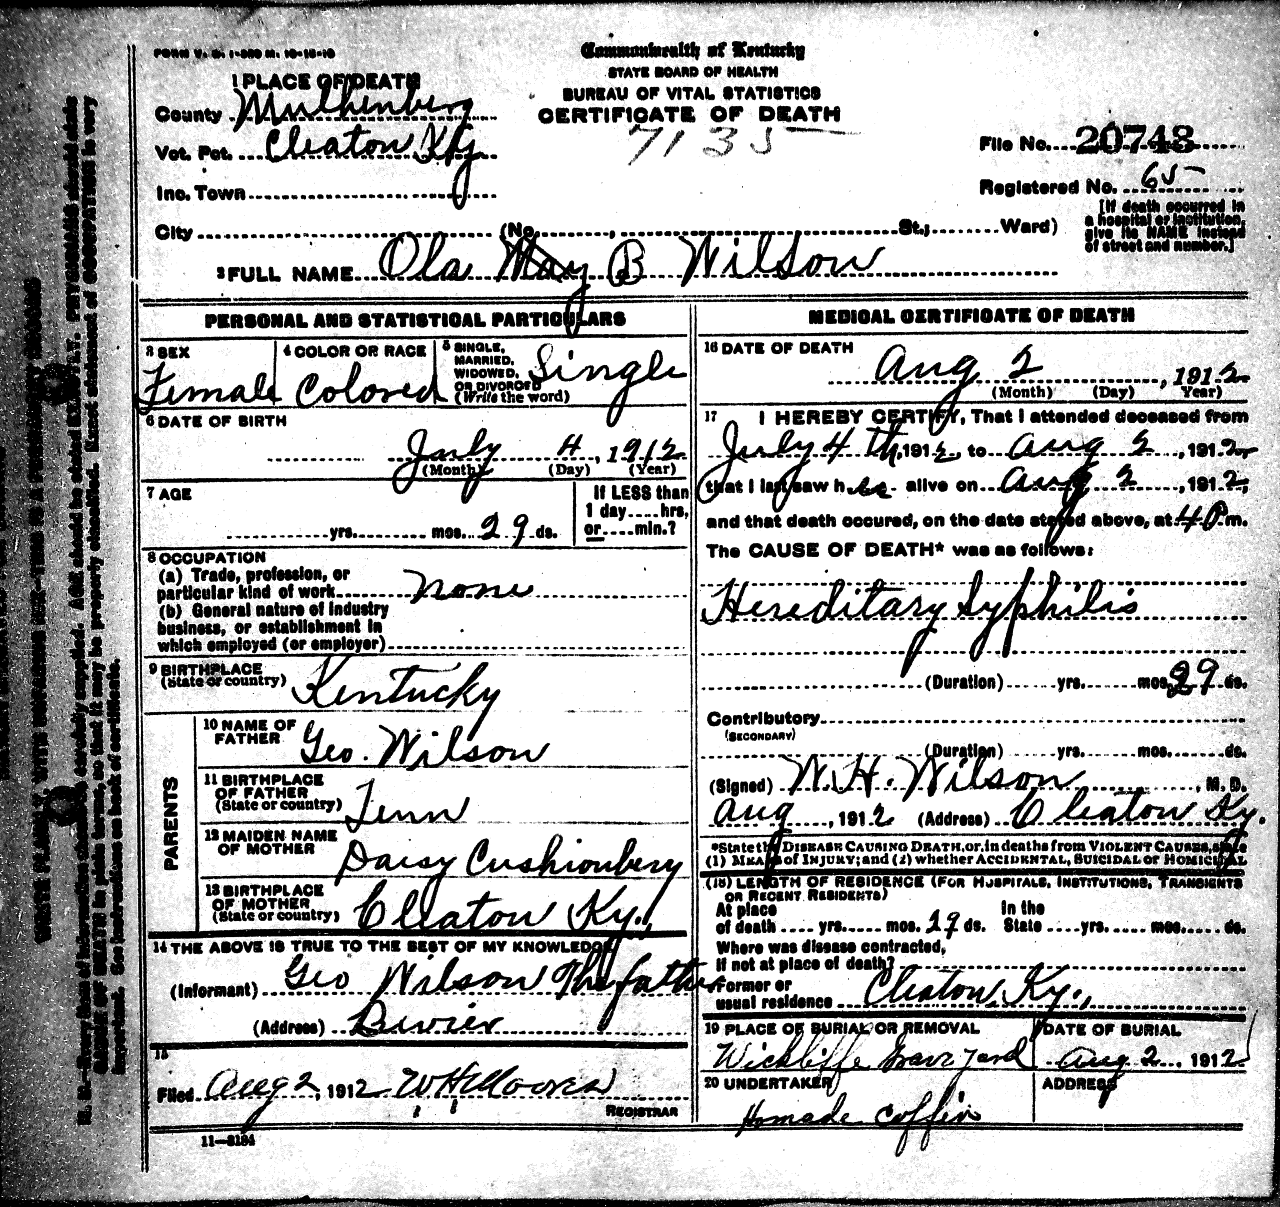 FORM V. S. 1-350 M. 10-15-10
Commonwealth of Kentucky
STATE BOARD OF HEALTH
BUREAU OF VITAL STATISTICS
CERTIFICATE OF DEATH
7135
1 PLACE OF DEATH
County Muhlenberg
Vot. Pct. Cleaton Ky
Inc. Town
City (No. St.; Ward)
File No. 20748
Registered No. 65
[If death occurred in
a hospital or institution,
give its NAME instead
of street and number.]
2 FULL NAME Ola May B Wilson
PERSONAL AND STATISTICAL PARTICULARS
3 SEX
Female
4 COLOR OR RACE
Colored
5 SINGLE,
MARRIED,
WIDOWED,
OR DIVORCED
(Write the word)
Single
6 DATE OF BIRTH
July 4, 1912
(Month) (Day) (Year)
7 AGE
yrs. mos. 29 ds.
If LESS than
1 day....hrs,
or....min.?
8 OCCUPATION
(a) Trade, profession, or
particular kind of work none
(b) General nature of industry
business, or establishment in
which employed (or employer)
9 BIRTHPLACE
(State or country) Kentucky
PARENTS
10 NAME OF
FATHER Geo. Wilson
11 BIRTHPLACE
OF FATHER
(State or country) Tenn
12 MAIDEN NAME
OF MOTHER Daisy Cushionbery
13 BIRTHPLACE
OF MOTHER
(State or country) Cleaton Ky.,
14 THE ABOVE IS TRUE TO THE BEST OF MY KNOWLEDGE
(Informant) Geo Wilson the father
(Address) Bevier
15
Filed Aug 2, 1912 W H Moores
REGISTRAR
11—3184
MEDICAL CERTIFICATE OF DEATH
16 DATE OF DEATH
Aug 2, 1912
(Month) (Day) Year)
17 I HEREBY CERTIFY, That I attended deceased from
July 4th, 1912, to Aug 2, 1912
that I last saw her alive on Aug 2, 1912,
and that death occured, on the date stated above, at 4 P m.
The CAUSE OF DEATH* was as follows:
Hereditary Syphilis
(Duration) yrs. mos. 29 ds.
Contributory
(SECONDARY)
(Duration) yrs. mos. ds.
(Signed) W. H. Wilson, M. D.
Aug, 1912 (Address) Cleaton Ky.
*State the DISEASE CAUSING DEATH, or, in deaths from VIOLENT CAUSES, state
(1) MEANS of INJURY; and (2) whether ACCIDENTAL, SUICIDAL or HOMICIDAL
(18) LENGTH OF RESIDENCE (FOR HOSPITALS, INSTITUTIONS, TRANSIENTS
OR RECENT RESIDENTS)
At place
of death yrs. mos. 29 ds.
In the
State yrs. mos. ds.
Where was disease contracted,
if not at place of death?
Former or
usual residence Cleaton, Ky.,
19 PLACE OF BURIAL OR REMOVAL
Wickliffe Grave Yard
DATE OF BURIAL
Aug 2, 1912
20 UNDERTAKER
Homade Coffin
ADDRESS
N. B.—Every item of information should be carefully supplied. AGE should be stated EXACTLY. PHYSICIANS should state
CAUSE OF DEATH in plain terms, so that it may be properly classified. Exact statement of OCCUPATION is very
important. See instructions on back of certificate.
WRITE PLAINLY, WITH UNFADING INK—THIS IS A PERMANENT RECORD